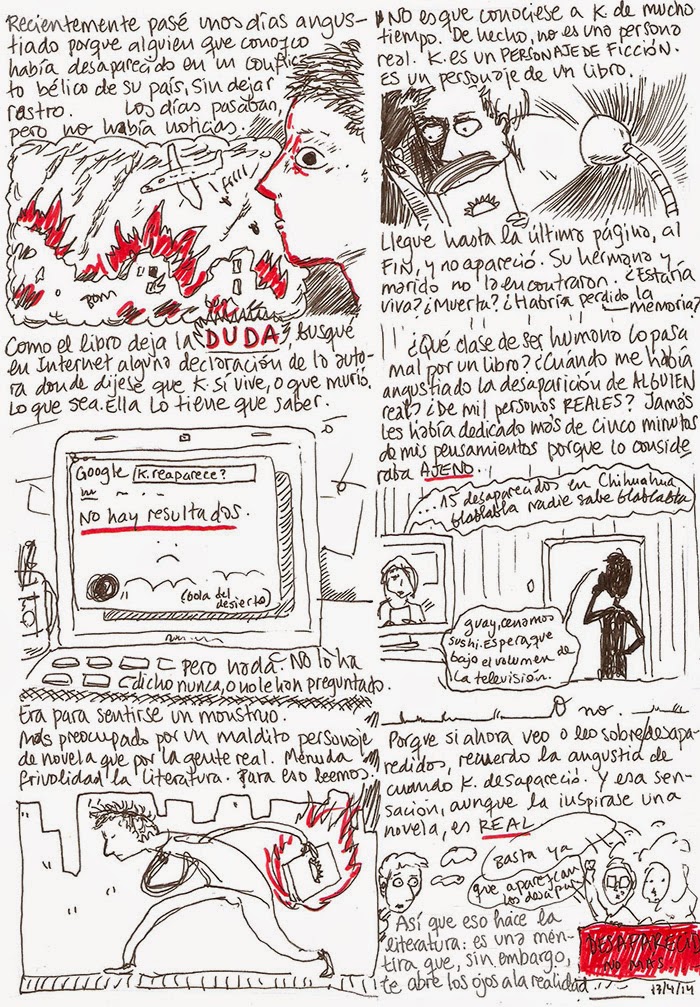 Recientemente pasé unos días angus-
tiado porque alguien que conozco
había desaparecido en un conflic-
to bélico de su país, sin dejar
rastro. Los días pasaban,
pero no había noticias.
BOM
NO es que conociese a K de mucho
tiempo. De hecho, no es una persona
real. K. es un PERSONAJE DE FICCIÓN.
Es un personaje de un libro.
Llegué hasta la última página, al
FIN, y no apareció. Su hermano y
marido no la encontraron. ¿Estaría
viva? ¿Muerta? ¿Habría perdido la
memoria?
Como el libro deja la DUDA, busqué
en Internet alguna declaración de la auto-
ra donde dijese que K. sí vive, o que murió.
Lo que sea. Ella lo tiene que saber.
Google K. reaparece?
No hay resultados.
(bola del
desierto)
Pero nada. No lo ha
dicho nunca, o no le han preguntado.
¿Qué clase de ser humano lo pasa
mal por un libro? ¿Cuándo me había
angustiado la desaparición de ALGUIEN
real? ¿De mil personas REALES? Jamás
les había dedicado más de cinco minutos
de mis pensamientos porque lo conside
raba AJENO.
...15 desaparecidos en Chihuahua
blablabla nadie sabe blablabla
guay, cenamos
sushi. Espera que
bajo el volumen de
la televisión.
Era para sentirse un monstruo.
Más preocupado por un maldito personaje
de novela que por la gente real. Menuda
frivolidad la literatura. Para eso leemos.
O no...
Porque si ahora veo o leo sobre desapa-
recidos, recuerdo la angustia de
cuando K. desapareció. Y esa sen-
sación, aunque la inspirase una
novela, es REAL
Basta ya
que aparezcan
los desapa
DESAPARECID
NO MAS
Así que eso hace la
literatura: es una men-
tira que, sin embargo,
te abre los ojos a la realidad.
17/4/14